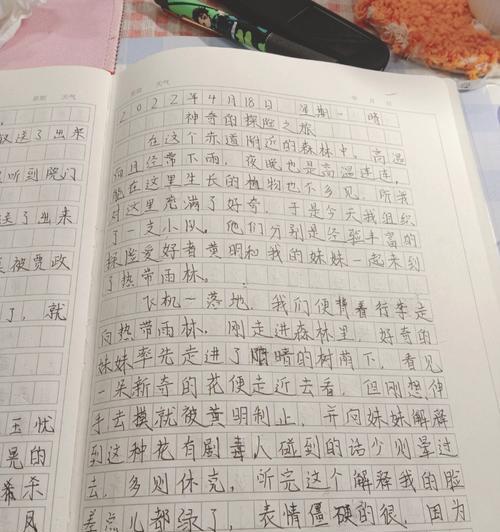 星期 天气
星期 天气
年 月 日
2022年4月18日 星期一 晴
神奇的探险之旅
在这个赤道附近的森林中,高温
而且经常下雨,夜晚也是高温连连,
能在这里生长的植物也不多见,所我
对这里充满了好奇,于是今天我组织
了一支小队。他们分别是经验丰富的
探险爱好者黄明和我的妹妹一起来到
了热带雨林。
飞机一落地,我们便背着行李走
向热带雨林,刚走进森林里,好奇的
妹妹率先走进了暗的树荫下,看见
一朵新奇的花便走近去看,但刚想伸
手去摸就被黄明制止,并向妹妹解释
到这种花有剧毒人碰到的话少则晕过
去,多则休克,听完这个解释我的脸
差点儿都绿了,表情僵硬的很,因为
送了出来
听到院门
送了出来
被贾政
了,就
玉忧
晃的
希杀
风